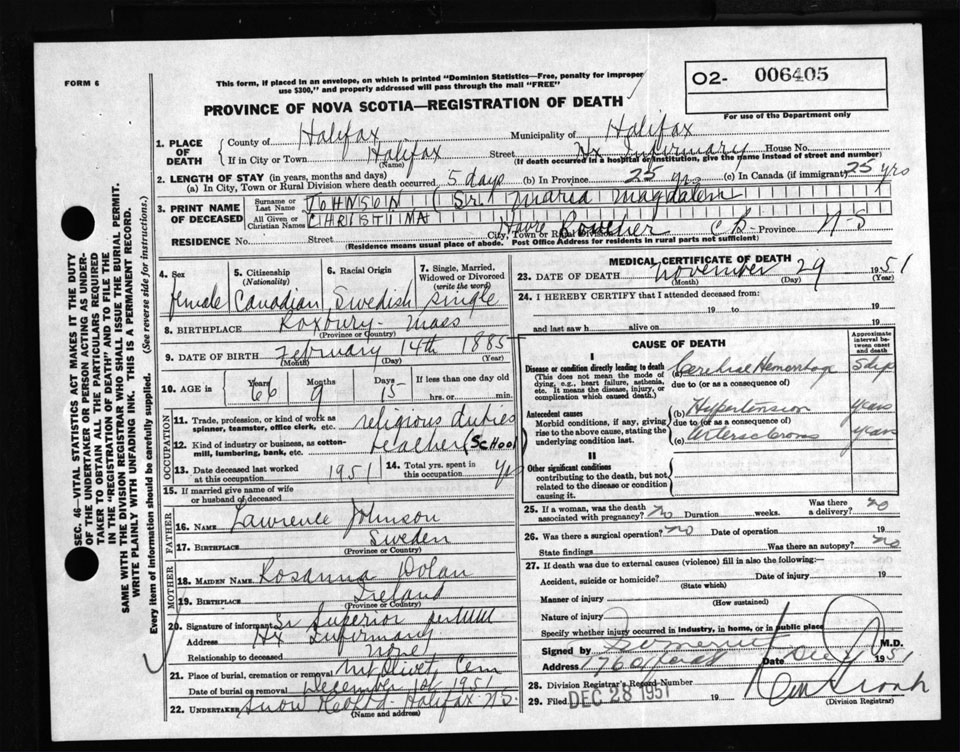 FORM 6
This form, if placed in an envelope, on which is printed "Dominion Statistics—Free, penalty for improper
use $300," and properly addressed will pass through the mail "FREE"
O2- 006405
For use of the Department only
PROVINCE OF NOVA SCOTIA—REGISTRATION OF DEATH
1. PLACE OF DEATH
County of Halifax Municipality of Halifax
If in City or Town Halifax Street Hx Infirmary House No.
(Name) (If death occurred in a hospital or institution, give the name instead of street and number)
2. LENGTH OF STAY (in years, months and days)
(a) In City, Town or Rural Division where death occurred 5 days (b) In Province 25 yrs (c) In Canada (if immigrant) 25 yrs
3. PRINT NAME OF DECEASED
Surname or Last Name JOHNSON (Sr. Maria Magdalen)
All Given or Christian Names CHRISTINA
RESIDENCE No. Street Havre Boucher C B- Province N-S
City, Town or Rural Division
(Residence means usual place of abode. Post Office Address for residents in rural parts not sufficient)
4. Sex female
5. Citizenship (Nationality) Canadian
6. Racial Origin Swedish
7. Single, Married, Widowed or Divorced (write the word) single
8. BIRTHPLACE Roxbury- Mass
(Province or Country)
9. DATE OF BIRTH February 14th 1885
(Month) (Day) (Year)
10. AGE in Years 66 Months 9 Days 15 If less than one day old
hrs. or min.
OCCUPATION
11. Trade, profession, or kind of work as
spinner, teamster, office clerk, etc. religious duties
12. Kind of industry or business, as cotton-
mill, lumbering, bank, etc. teacher (SCHOOL
13. Date deceased last worked
at this occupation 1951
14. Total yrs. spent in
this occupation
15. If married give name of wife
or husband of deceased
FATHER
16. NAME Lawrence Johnson
17. BIRTHPLACE Sweden
(Province or Country)
MOTHER
18. MAIDEN NAME Rosanna Dolan
19. BIRTHPLACE Ireland
(Province or Country)
20. Signature of informant Sr Superior
Address Hx Infirmary
Relationship to deceased none
21. Place of burial, cremation or removal Mt Olivet Cem
Date of burial or removal December 1st 1951
22. UNDERTAKER Snow Halifax N S-
(Name and address)
MEDICAL CERTIFICATE OF DEATH
23. DATE OF DEATH November 29 1951
(Month) (Day) (Year)
24. I HEREBY CERTIFY that I attended deceased from:
19 to 19
and last saw h alive on 19
CAUSE OF DEATH
Approximate interval between onset and death
I
Disease or condition directly leading to death
(This does not mean the mode of
dying, e.g., heart failure, asthenia,
etc. It means the disease, injury, or
complication which caused death.)
Cerebral Hemorrhage
due to (or as a consequence of)
Antecedent causes
Morbid conditions, if any, giving
rise to the above cause, stating the
underlying condition last.
(b) Hypertension years
due to (or as a consequence of)
(c) years
II
Other significant conditions
contributing to the death, but not
related to the disease or condition
causing it.
25. If a woman, was the death
associated with pregnancy? no Duration weeks. Was there a delivery? no
26. Was there a surgical operation? no Date of operation 19
State findings Was there an autopsy? no
27. If death was due to external causes (violence) fill in also the following:
Accident, suicide or homicide? Date of injury 19
(State which)
Manner of injury
(How sustained)
Nature of injury
Specify whether injury occurred in industry, in home, or in public place
Signed by M.D.
Address Date 1951
28. Division Registrar's Record Number
29. Filed DEC 28 1951 19
(Division Registrar)
SEC. 46—VITAL STATISTICS ACT MAKES IT THE DUTY
OF THE UNDERTAKER OR PERSON ACTING AS UNDER-
TAKER TO OBTAIN ALL THE PARTICULARS REQUIRED
IN THE "REGISTRATION OF DEATH" AND TO FILE THE
SAME WITH THE DIVISION REGISTRAR WHO SHALL ISSUE THE BURIAL PERMIT.
WRITE PLAINLY WITH UNFADING INK. THIS IS A PERMANENT RECORD.
Every item of information should be carefully supplied. (See reverse side for instructions.)